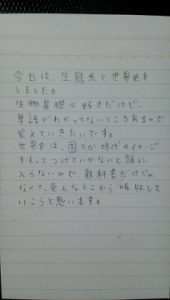 今日は、生態系と世界史を
しました。
生物基礎は好きだけど、
単語がわかってないところあるので
覚えていきたいです。
世界史は、国とか時代のイメージ
をもってつけていかないと頭に
入らないので、教科書だけじゃ
なくて、色んなとこから吸収して
いこうと思います。